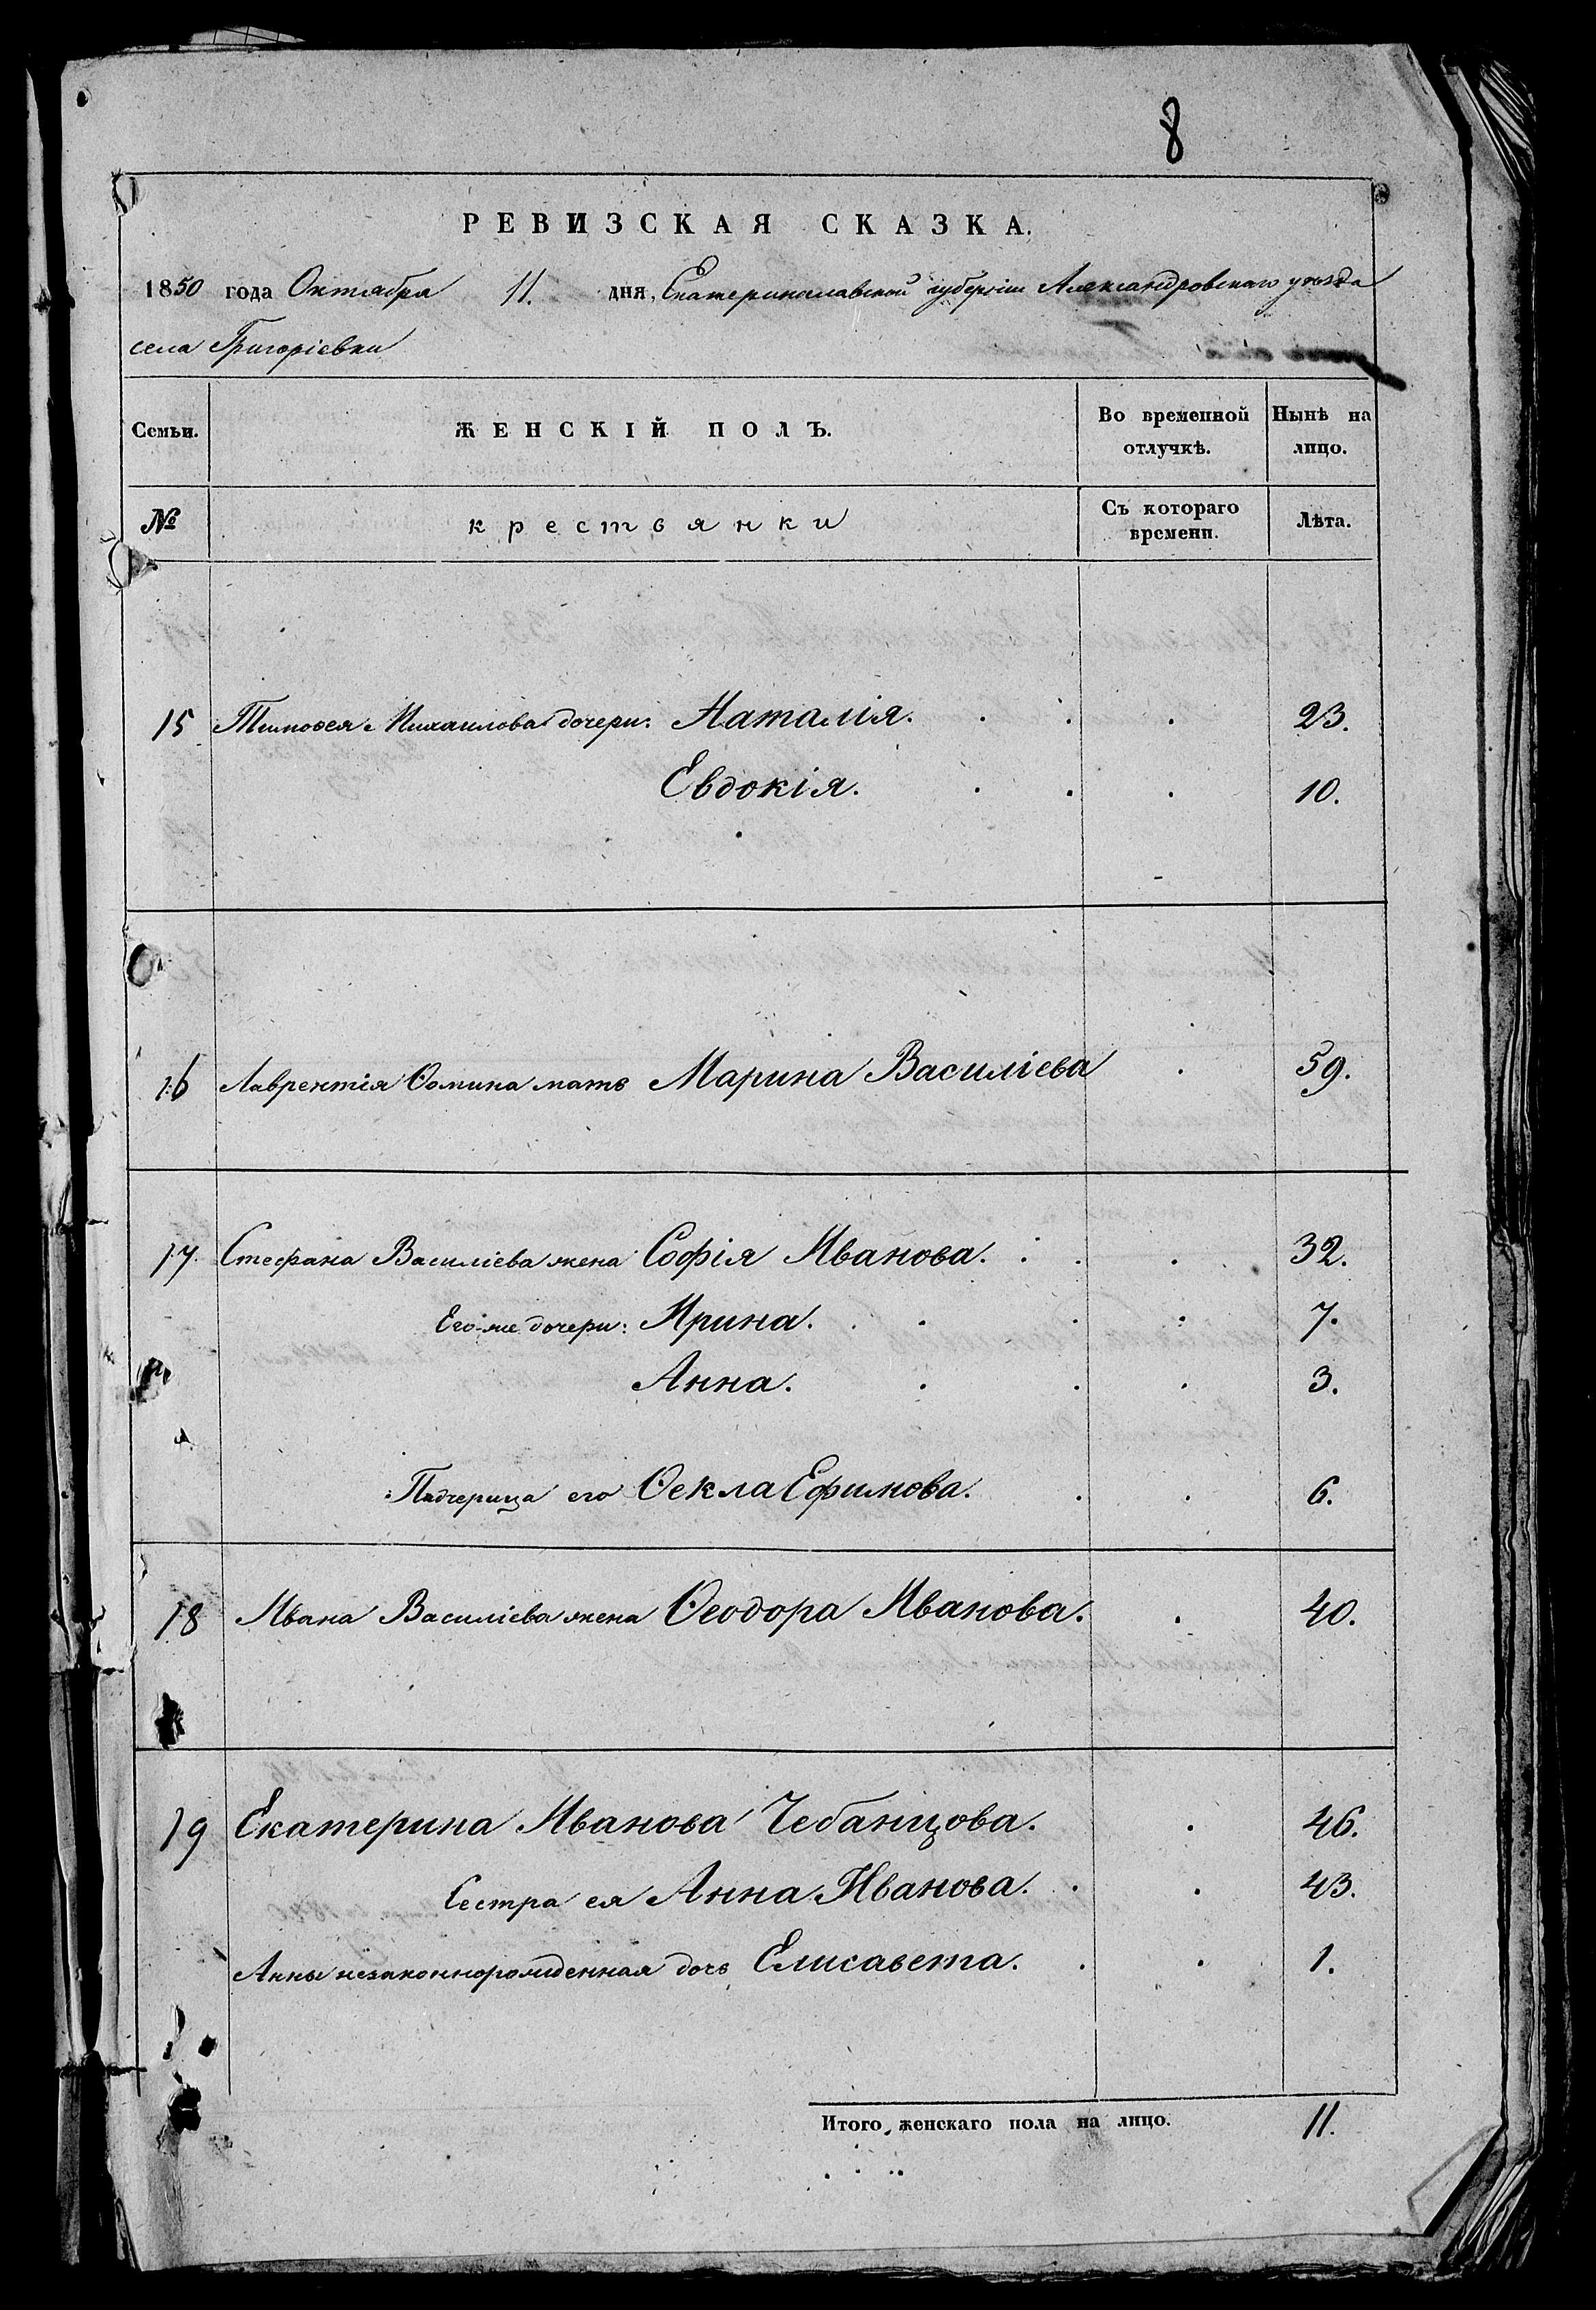 8
РЕВИЗСКАЯ СКАЗКА.
1850 года Октября 11. дня, Екатеринославской губерніи Александровскаго уѣзда
села Григоріевки
Семьи. ЖЕНСКІЙ ПОЛЪ. Во временной отлучкѣ. Нынѣ на лицо.
№ крестьянки Съ котораго времени. Лѣта.
15 Тимоѳея Михаилова дочери: Наталія. 23.
Евдокія. 10.
16 Лаврентія Ѳомина мать Марина Василіева 59.
17. Стефана Василіева жена Софія Иванова. 32.
Его-же дочери: Ирина. 7.
Анна. 3.
Падчерица его Ѳекла Ефимова. 6.
18 Ивана Василіева жена Ѳеодора Иванова. 40.
19 Екатерина Иванова Чебанцова. 46.
Сестра ея Анна Иванова. 43.
Анны незаконнорожденная дочь Елисавета. 1.
Итого женскаго пола на лицо. 11.